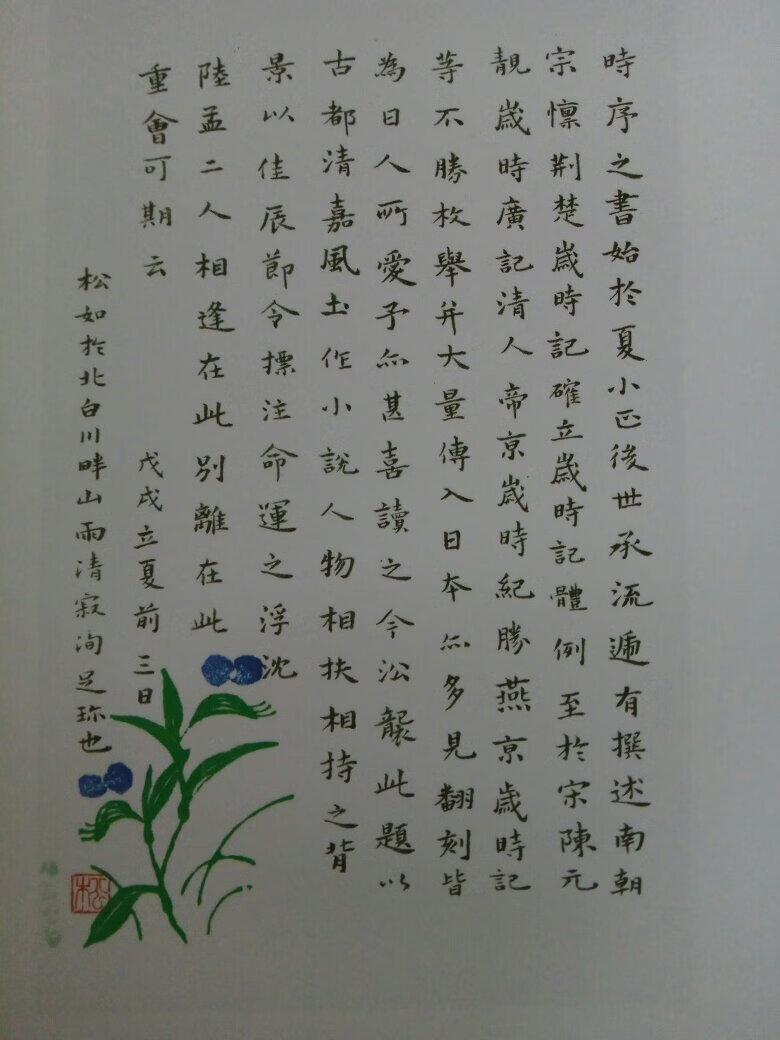 時序之書始於夏小正後世承流遞有撰述南朝
宗懍荆楚歲時記確立歲時記體例至於宋陳元
靚歲時廣記清人帝京歲時紀勝燕京歲時記
等不勝枚舉并大量傳入日本亦多見翻刻皆
為日人所愛予亦甚喜讀之今沿襲此題以
古都清嘉風土作小說人物相扶相持之背
景以佳辰節令摽注命運之浮沈
陸孟二人相逢在此別離在此
重會可期云
戊戌立夏前三日
松如於北白川畔山雨清寂洵足珎也
松